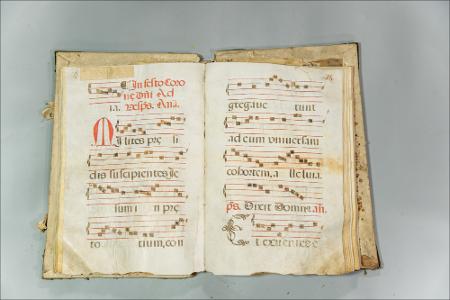 In festo Coro
ne Dñi Ad
ia. Vesps. Aña.
Milites pre li
dis suscipientes Je
sum i n pre
to tium, con
gregave runt
ad eum universam
cohortem, a lleluia.
ps. Dixit Domin9. añ.
Et exuentes e